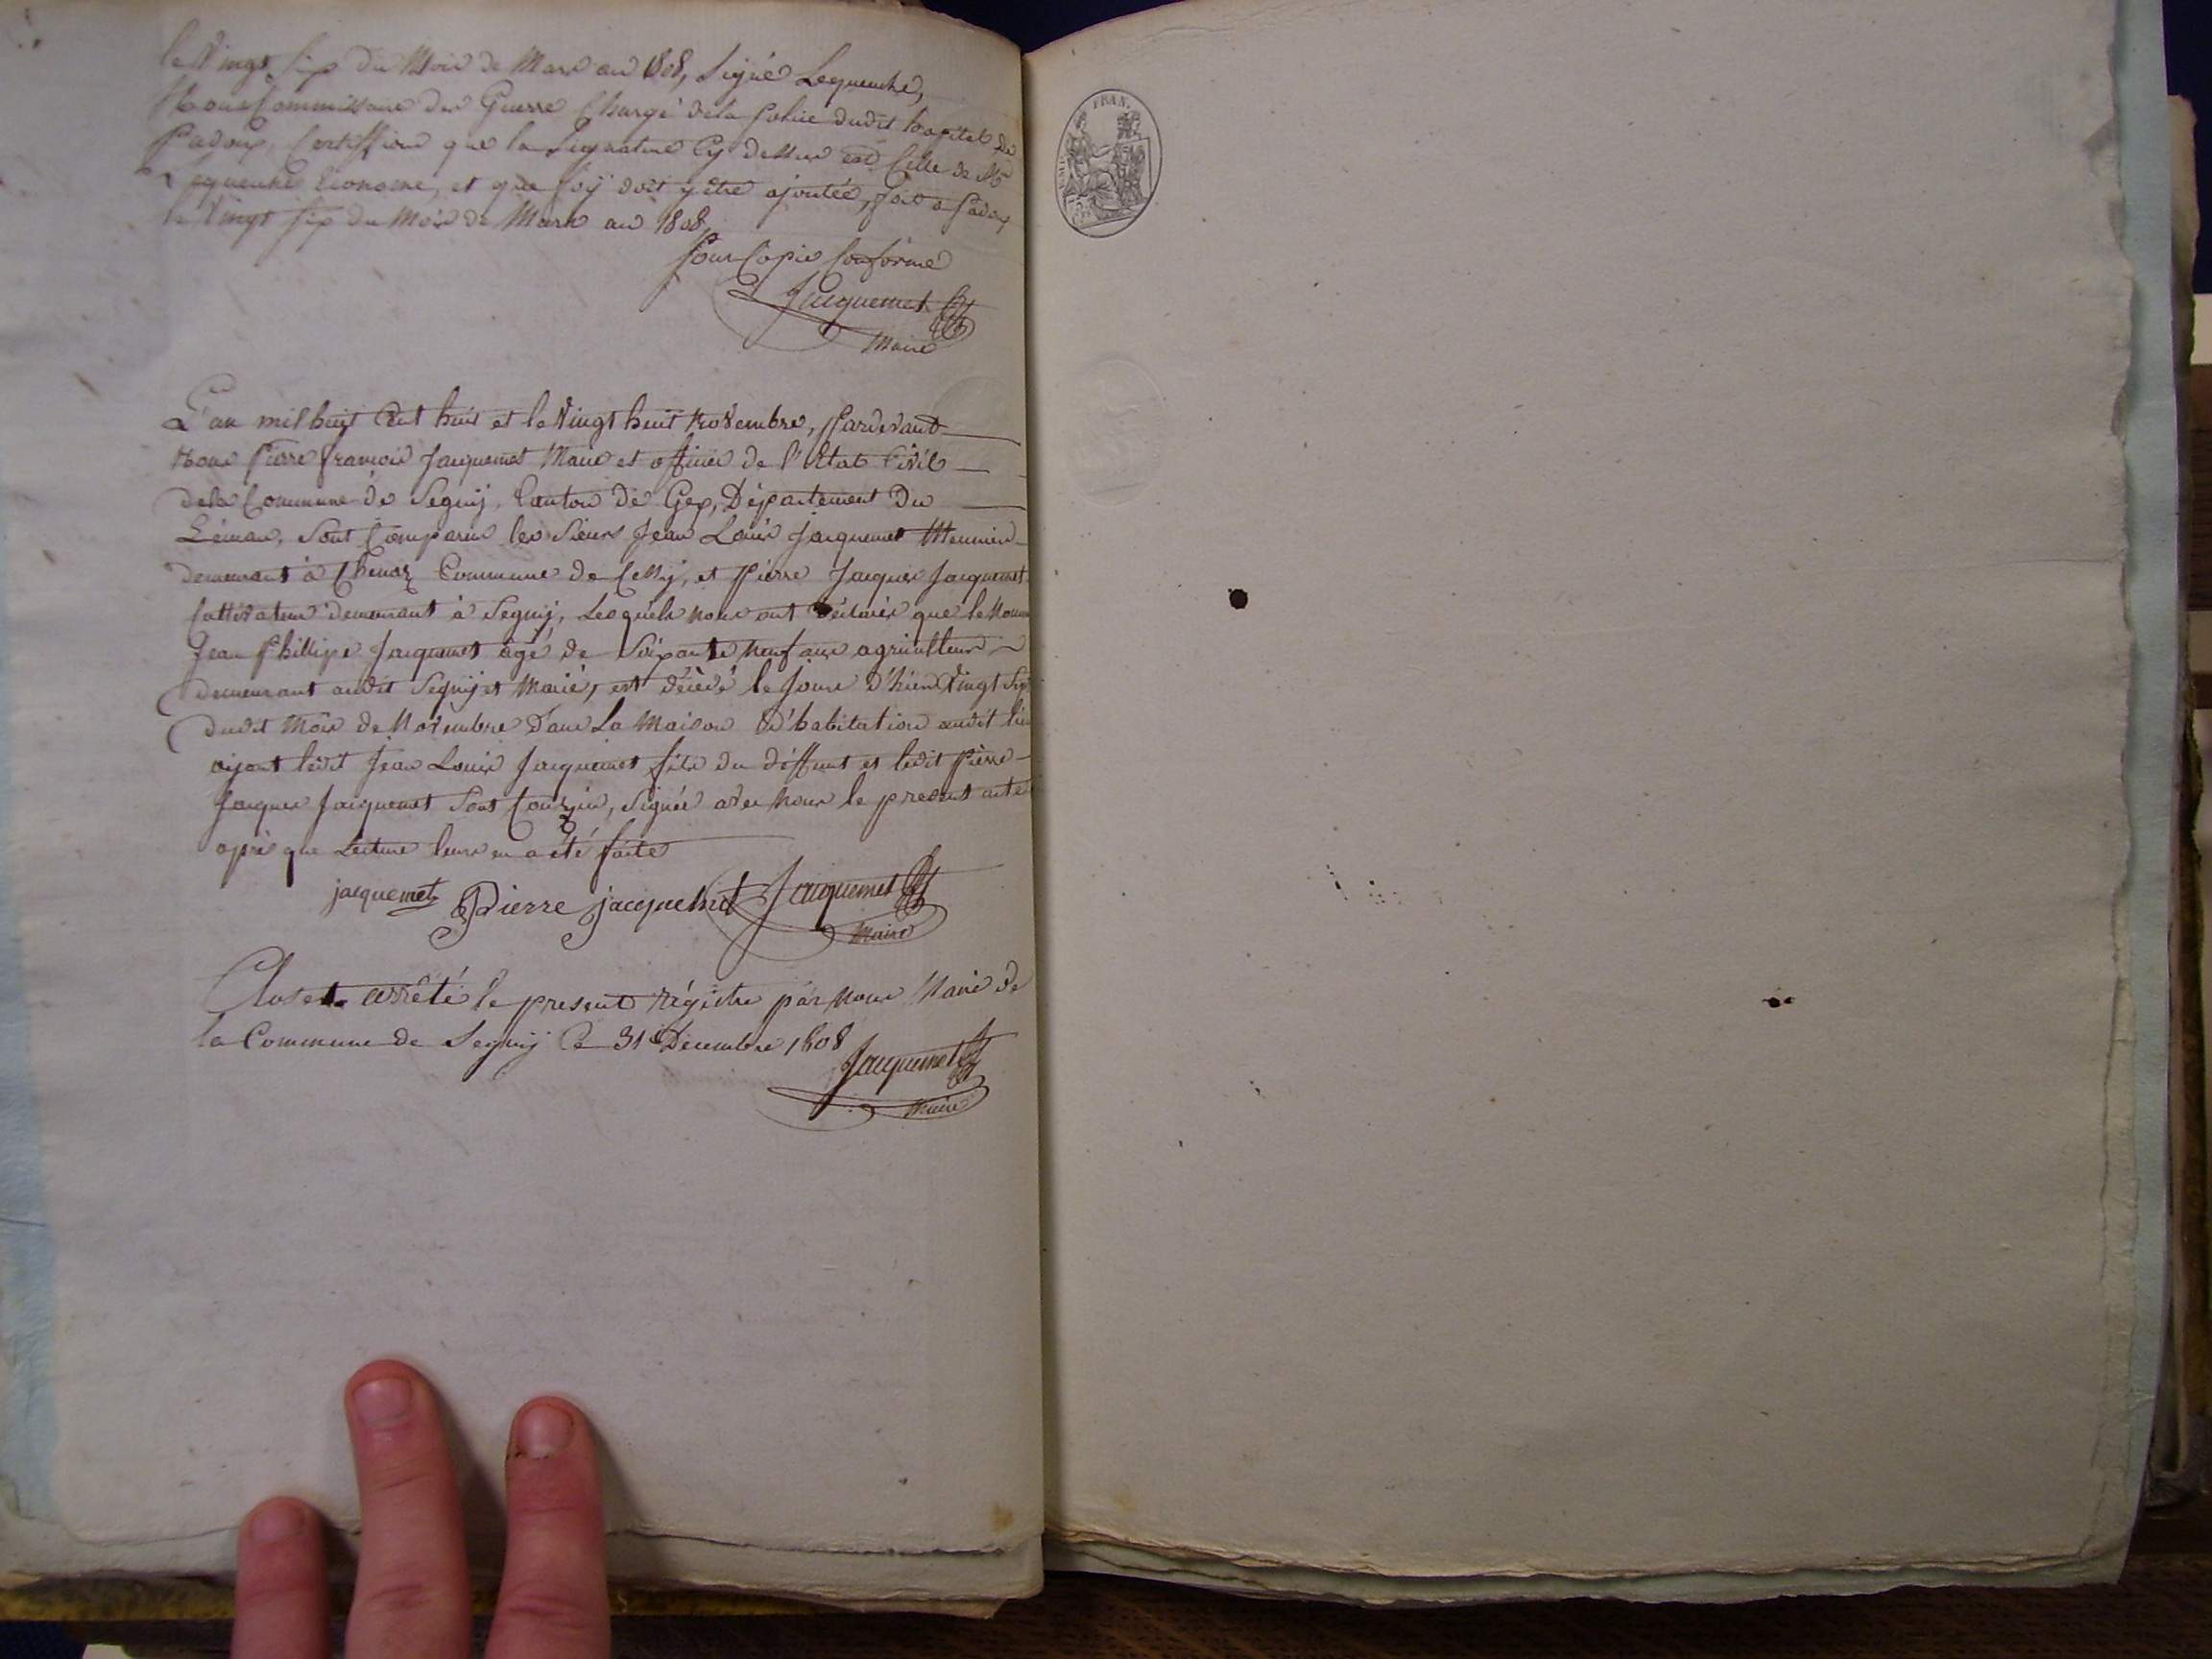 le Vingt six du Mois de Mars an 1808, Signé Lequenche,
Nous Commissaire des Guerre Chargé dela Police dudit hopital de
Padoux, Certiffions que la Signature Cy dessus est Celle de Mr
Lequenche Econome, et que foÿ doit y être ajoutée, fait a Padoux
le Vingt six du Mois de Mars an 1808,
Pour Copie Conforme
Jacquemet
Maire
L'an mil huit Cent huit et le Vingt huit Novembre, Pardevant
Nous Pierre François Jacquemet Maire et officier de l'Etat Civil
dela Commune de Segnÿ, Canton de Gex, Département Du
Léman, Sont Comparus les Sieurs Jean Louis Jacquemet Meunier
demeurant à Commune de Cessÿ, et Pierre Jacques Jacquemet
Cultivateur demeurant à Segnÿ, Lesquels nous ont déclarés que le Nommé
Jean Phillipe Jacquemet âgé de Soixante neuf ans agriculteur
demeurant audit Segnÿ et Marié, est décédé le Jour d'hier Vingt Sept
dudit Mois de Novembre Dans La Maison d'habitation audit lieu
aÿant ledit Jean Louis Jacquemet fils du deffunt et ledit Pierre
Jacques Jacquemet Son Couzin, Signés avec nous le present acte
après que Lecture leurs en a été faite
jacquemet Pierre jacquemet Jacquemet
Maire
Clos et arrêté le present régistre par nous Maire de
la Commune de Segnÿ le 31 Décembre 1808
Jacquemet
Maire
FRAN.